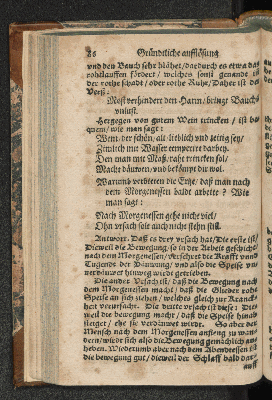 86 Gründtliche aufflösung
vnd den Bauch sehr blähet/ dardurch es etwa das
rohtlauffen fördert/ welches sonst genandt ist
der rothe schadt/ oder rothe Ruhr/ Daher ist der
Verß:
Most verhindert den Harn/ bringt Bauchs
vnlust.
Hergegen von gutem Wein trincken/ ist be
quem/ wie man sagt:
Wein der schön, alt lieblich vnd zeitig sey/
Zimlich mit Wasser temperirt darbey.
Den man mit Maß. raht trincken sol/
Macht däuwen/ vnd bekompt dir wol.
Warumb verbitten die Ertzte/ daß man nach
dem Morgenessen baldt arbeite? Wie
man sagt:
Nach Morgenessen gehe nicht viel/
Ohn vrsach sole auch nicht stehn still.
Antwort. Daß es drey vrsach hat/ Die erste ist/
Dieweil die Bewegung, so in der Arbeit geschicht
nach dem Morgenessen/ verschret die Krafft vnnd
Tugende der Däuwung/ vnd also die Speise vn
verdäuwet hinweg wirdt getrieben.
Die ander Vrsach ist/ daß die Bewegung nach
dem Morgenessen macht/ daß die Glieder rohe
Speise an sich ziehen/ welches gleich zur Kranck
heit vervrsacht. Die dritte vrsach ist diese: Die
weil die bewegung macht/ daß die Speise hinab
steiget/ ehe sie verdäuwet wirdt. So aber der
Mensch nach dem Morgenessen anfieng zu wan
dern/ wirdt sich also die Bewegung gemächlich an
heben. Wiederumb aber nach dem Abendtessen ist
die bewegung gut/ dieweil der Schlaff bald dar
auff